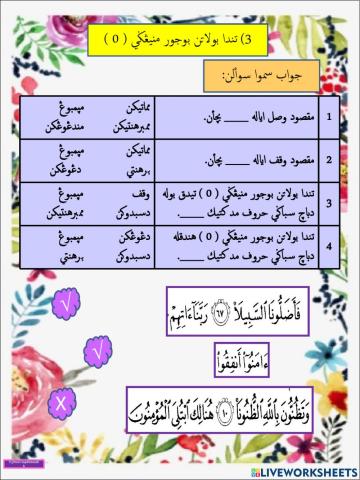 3) تندا بولاتن بوجور منيڠݢي ( 0 )
جواب سموا سوألن:
1
مقصود وصل اياله ____ بچأن.
مماتيكن
مڽمبوڠ
ممبرهنتيكن
مندڠوڠكن
2
مقصود وقف اياله ____ بچأن.
مماتيكن
مڽمبوڠ
برهنتي
دڠوڠكن
3
تندا بولاتن بوجور منيڠݢي ( 0 ) تيدق بوليه
دباچ سباݢاي حروف مد كتيك ____.
وقف
مڽمبوڠ
دسبدوكن
ممبرهنتيكن
4
تندا بولاتن بوجور منيڠݢي ( 0 ) هندقله
دباچ سباݢاي حروف مد كتيك ____.
دڠوڠكن
مڽمبوڠ
دسبدوكن
برهنتي
فَأَضَلُّونَا ٱلسَّبِيلَا۠ ٦٧ رَبَّنَآ ءَاتِهِمْ
ءَامَنُوٓا۟ أَنفِقُوا۟
وَتَظُنُّونَ بِٱللَّهِ ٱلظُّنُونَا۠ ١٠ هُنَالِكَ ٱبْتُلِىَ ٱلْمُؤْمِنُونَ
√
√
X
LIVEWORKSHEETS